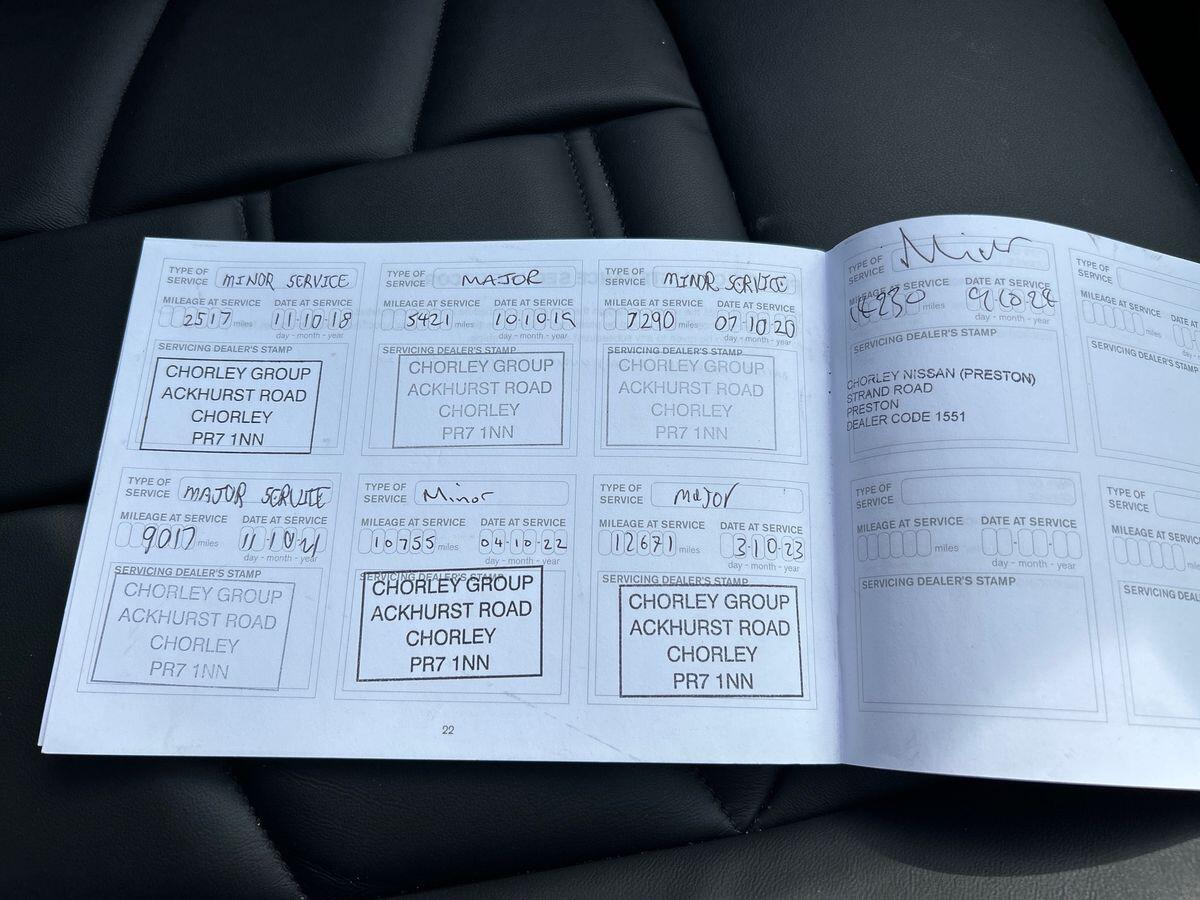 TYPE OF SERVICE MINOR SERVICE
MILEAGE AT SERVICE DATE AT SERVICE
2517 miles 11-10-18
day - month - year
SERVICING DEALER'S STAMP
CHORLEY GROUP
ACKHURST ROAD
CHORLEY
PR7 1NN
TYPE OF SERVICE MAJOR
MILEAGE AT SERVICE DATE AT SERVICE
5421 miles 10-10-19
day - month - year
SERVICING DEALER'S STAMP
CHORLEY GROUP
ACKHURST ROAD
CHORLEY
PR7 1NN
TYPE OF SERVICE MINOR SERVICE
MILEAGE AT SERVICE DATE AT SERVICE
7290 miles 07-10-20
day - month - year
SERVICING DEALER'S STAMP
CHORLEY GROUP
ACKHURST ROAD
CHORLEY
PR7 1NN
TYPE OF SERVICE MAJOR SERVICE
MILEAGE AT SERVICE DATE AT SERVICE
9017 miles 11-10-21
day - month - year
SERVICING DEALER'S STAMP
CHORLEY GROUP
ACKHURST ROAD
CHORLEY
PR7 1NN
TYPE OF SERVICE Minor
MILEAGE AT SERVICE DATE AT SERVICE
10755 miles 04-10-22
day - month - year
SERVICING DEALER'S STAMP
CHORLEY GROUP
ACKHURST ROAD
CHORLEY
PR7 1NN
TYPE OF SERVICE Major
MILEAGE AT SERVICE DATE AT SERVICE
12671 miles 3-10-23
day - month - year
SERVICING DEALER'S STAMP
CHORLEY GROUP
ACKHURST ROAD
CHORLEY
PR7 1NN
22
TYPE OF SERVICE Minor
MILEAGE AT SERVICE DATE AT SERVICE
miles
day - month - year
SERVICING DEALER'S STAMP
CHORLEY NISSAN (PRESTON)
STRAND ROAD
PRESTON
DEALER CODE 1551
TYPE OF SERVICE
MILEAGE AT SERVICE DATE AT
miles
SERVICING DEALER'S STAMP
TYPE OF SERVICE
MILEAGE AT SERVICE DATE AT SERVICE
miles
day - month - year
SERVICING DEALER'S STAMP
TYPE OF SERVICE
MILEAGE AT SERVICE
SERVICING DEAL